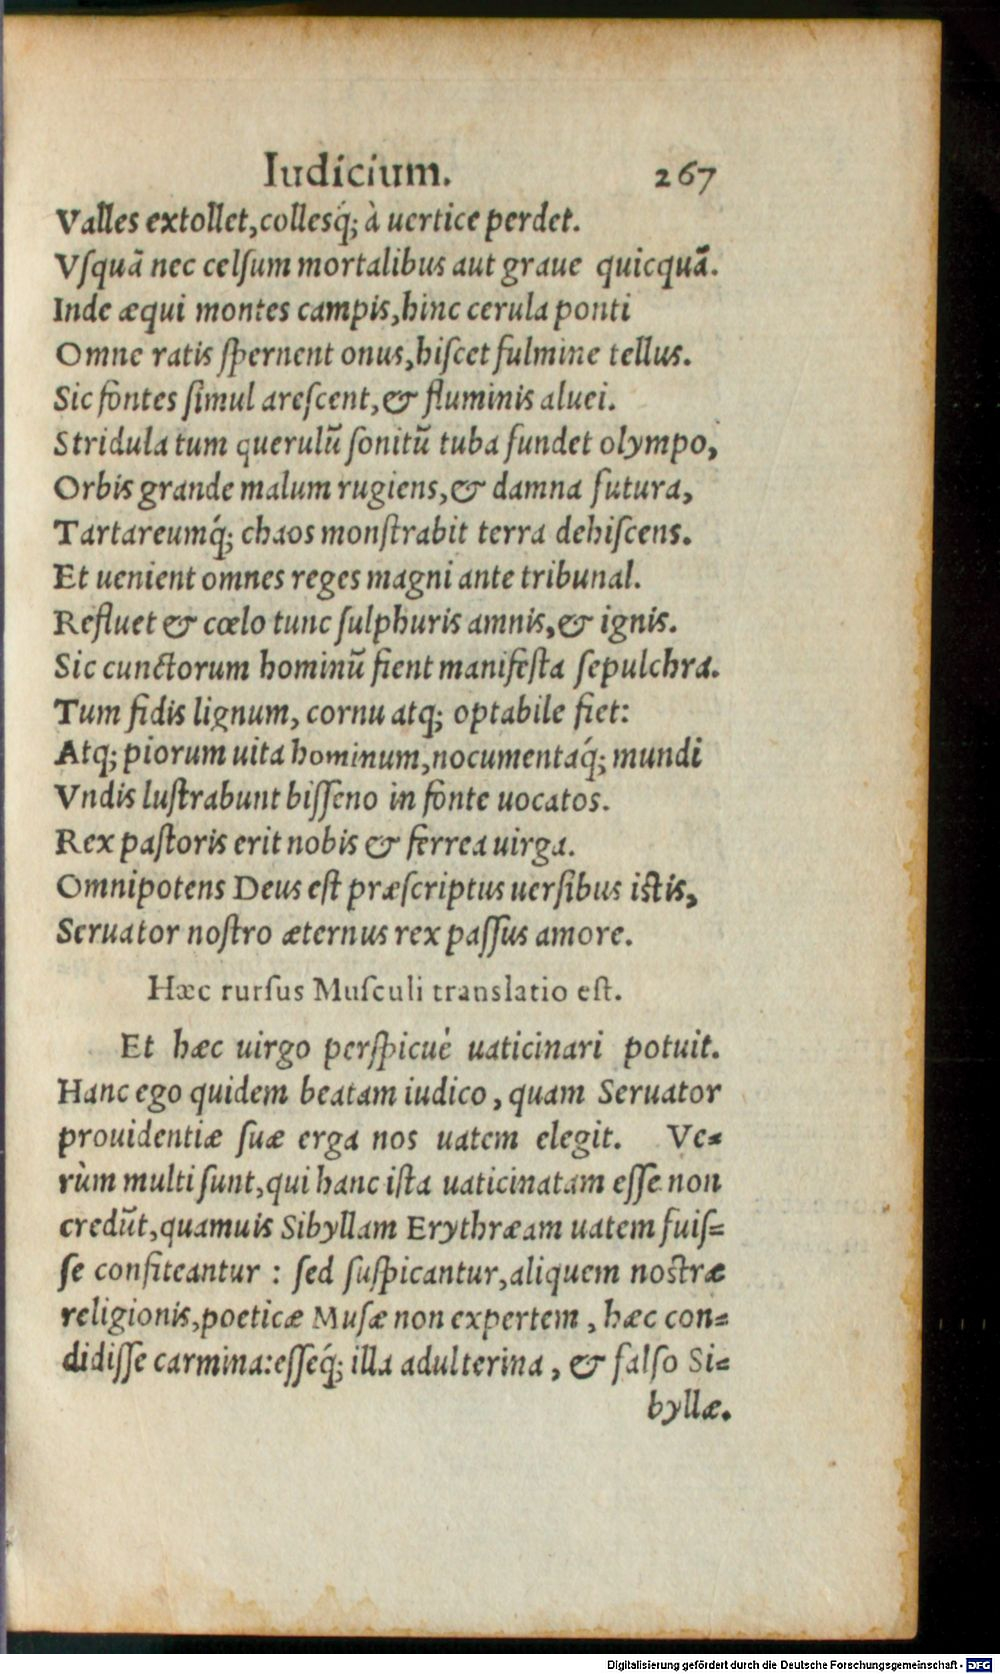 Iudicium. 267
Valles extollet, collesq́; à uertice perdet.
Vſquã nec celſum mortalibus aut graue quicquã.
Inde æqui montes campis, hinc cerula ponti
Omne ratis ſpernent onus, hiſcet fulmine tellus.
Sic fontes ſimul areſcent, & fluminis aluei.
Stridula tum querulũ ſonitũ tuba fundet olympo,
Orbis grande malum rugiens, & damna futura,
Tartareumq́; chaos monſtrabit terra dehiſcens.
Et uenient omnes reges magni ante tribunal.
Refluet & cœlo tunc ſulphuris amnis, & ignis.
Sic cunctorum hominũ fient manifeſta ſepulchra.
Tum fidis lignum, cornu atq; optabile fiet:
Atq; piorum uita hominum, nocumentaq́; mundi
Vndis luſtrabunt biſſeno in fonte uocatos.
Rex paſtoris erit nobis & ferrea uirga.
Omnipotens Deus eſt præſcriptus uerſibus iſtis,
Seruator noſtro æternus rex paſſus amore.
Hæc rurſus Muſculi translatio eſt.
Et hæc uirgo perſpicuè uaticinari potuit.
Hanc ego quidem beatam iudico, quam Seruator
prouidentiæ ſuæ erga nos uatem elegit. Ve-
rùm multi ſunt, qui hanc iſta uaticinatam eſſe non
credũt, quamuis Sibyllam Erythræam uatem fuiſ-
ſe confiteantur : ſed ſuſpicantur, aliquem noſtræ
religionis, poeticæ Muſæ non expertem, hæc con-
didiſſe carmina: eſſeq́; illa adulterina, & falſo Si-
byllæ.
Digitalisierung gefördert durch die Deutsche Forschungsgemeinschaft - DFG